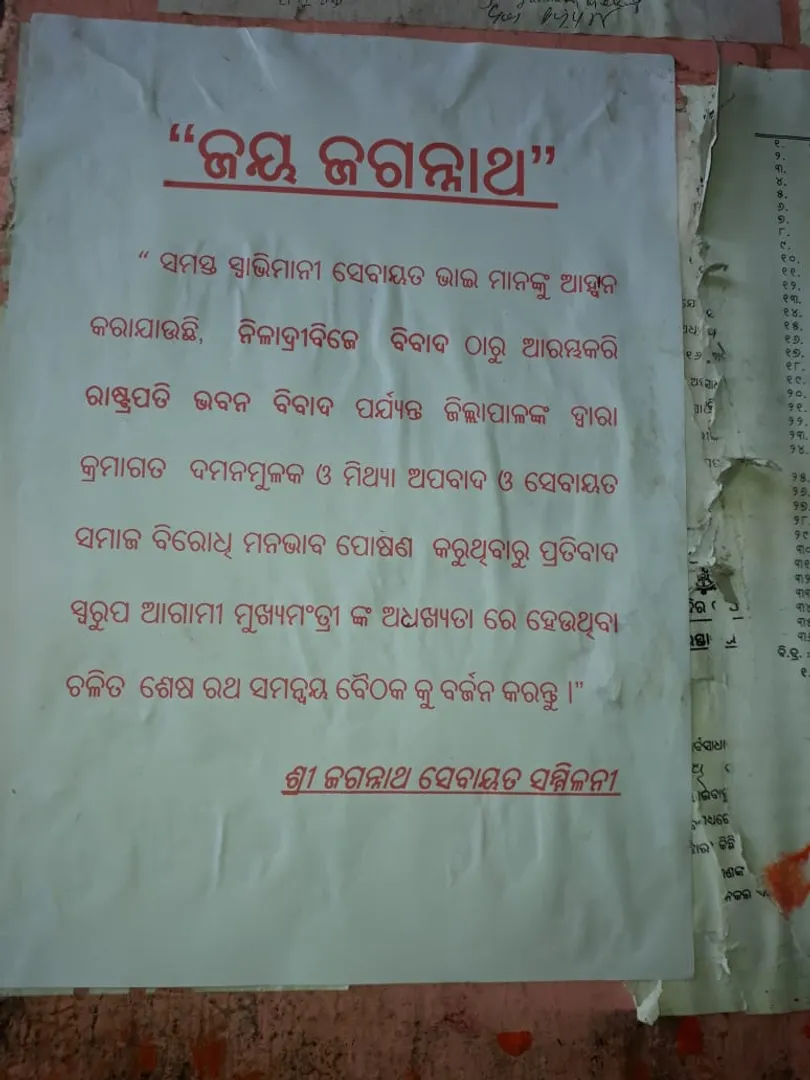 “ଜୟ ଜଗନ୍ନାଥ”
“ ସମସ୍ତ ସ୍ୱାଭିମାନୀ ସେବାୟତ ଭାଇ ମାନଙ୍କୁ ଆହ୍ୱାନ
କରାଯାଉଛି, ନିଳାଦ୍ରୀବିଜେ ବିବାଦ ଠାରୁ ଆରମ୍ଭକରି
ରାଷ୍ଟ୍ରପତି ଭବନ ବିବାଦ ପର୍ଯ୍ୟନ୍ତ ଜିଲ୍ଲାପାଳଙ୍କ ଦ୍ୱାରା
କ୍ରମାଗତ ଦମନମୁଳକ ଓ ମିଥ୍ୟା ଅପବାଦ ଓ ସେବାୟତ
ସମାଜ ବିରୋଧି ମନଭାବ ପୋଷଣ କରୁଥିବାରୁ ପ୍ରତିବାଦ
ସ୍ୱରୁପ ଆଗାମୀ ମୁଖ୍ୟମଂତ୍ରୀ ଙ୍କ ଅଧ୍ୟଖ୍ୟତା ରେ ହେଉଥିବା
ଚଳିତ ଶେଷ ରଥ ସମନ୍ୱୟ ବୈଠକ କୁ ବର୍ଜନ କରନ୍ତୁ ।”
ଶ୍ରୀ ଜଗନ୍ନାଥ ସେବାୟତ ସମ୍ମିଳନୀ
୧.
୨.
୩.
୪.
୫.
୬.
୭.
୮.
୯.
୧୦.
୧୧.
୧୨.
୧୩.
୧୪.
୧୫.
୧୬.
୧୭.
୧୮.
୧୯.
୨୦.
୨୧.
୨୨.
୨୩.
୨୪.